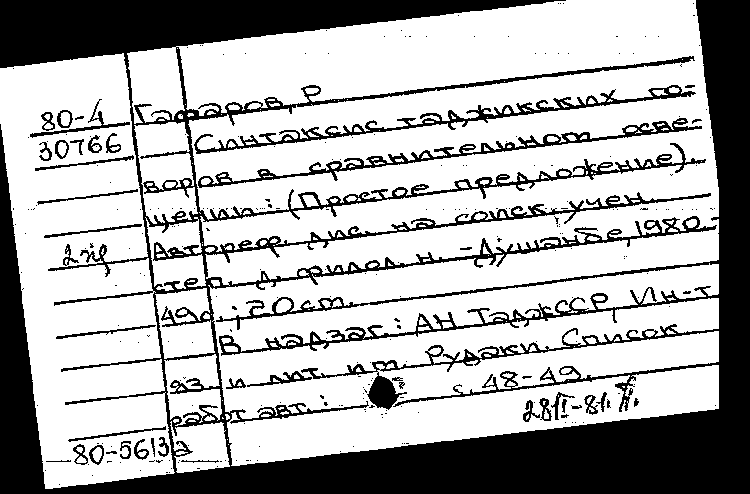 80-4 Гафаров, Р
30766 Синтаксис таджикских го-
воров в сравнительном осве-
щении: (Простое предложение).
Автореф. дис. на соиск. учен.
степ. д. филол. н. - Душанбе, 1980.-
49с.; 20 см.
В надзаг.: АН ТаджССР, Ин-т
яз. и лит. им. Рудаки. Список
работ авт.: с. 48-49.
80-5613а